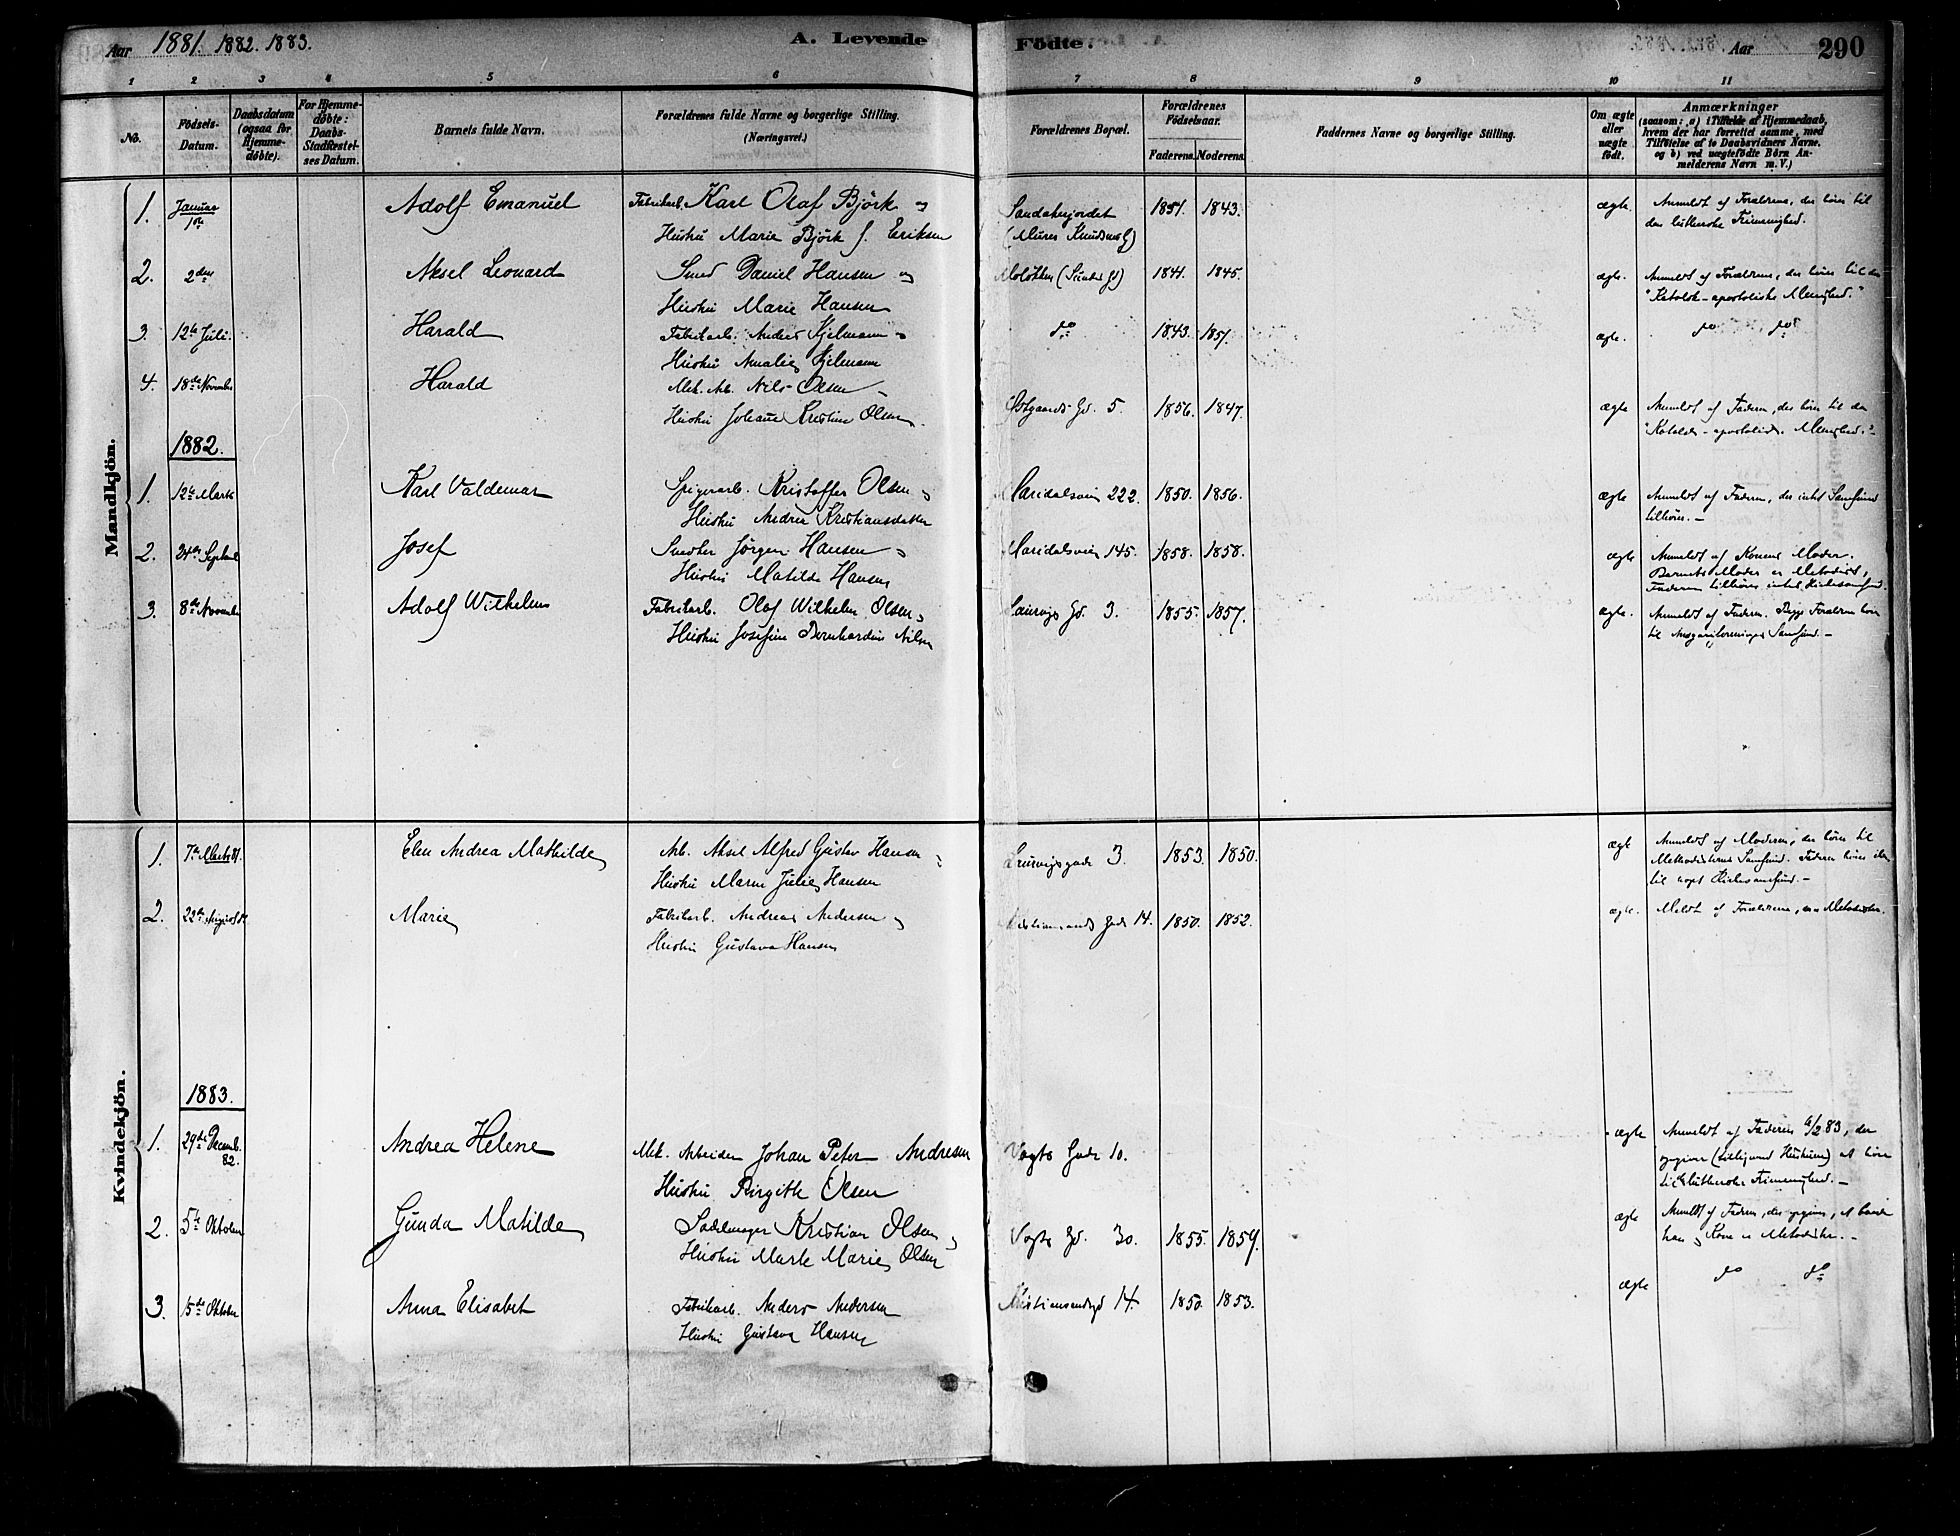 Aar 1881. 1882. 1883. A. Levende Fødte. Aar 290
1 2 3 4 5 6 7 8 9 10 11
No. Fødsels-Datum. Daabsdatum (ogsaa for Hjemmedøbte). For Hjemmedøbte: Daabs-Stadfæstelses Datum. Barnets fulde Navn. Forældrenes fulde Navne og borgerlige Stilling. (Næringsvei.) Forældrenes Bopæl. Forældrenes Fødselsaar. Faderens. Moderens. Faddernes Navne og borgerlige Stilling. Om ægte eller uægte født. Anmærkninger (saasom: a) i Tilfælde af Hjemmedaab, hvem der har forrettet samme, med Tilføielse af to Daabsvidners Navne, og b) ved uægtefødte Børn Anmelderens Navn m. V.)
Mandkjön.
1. Januar 1ste Adolf Emanuel Fabrikarb. Karl Olaf Björk og Sandakerjordet 1851. 1843. ægte. Anmeldt af Forældrene, der hører til
Hustru Marie Björk f. Eriksen den lutherske Frimenighed.
2. 2den Aksel Leonard Smed Daniel Hansen og 1841. 1845. ægte. Anmeldt af Forældrene, der hører til den
Hustru Marie Hansen "Katolsk-apostoliske Menighed."
3. 12te Juli. Harald Fabrikarb. Anders Hjelmann og do 1843. 1851. ægte. do do
Hustru Amalie Hjelmann
4. 18de November Harald Mek. Arb. Nils Olsen
Hustru Johanne Kristine Olsen. Østgaards Gd. 5. 1856. 1847. ægte Anmeldt af Faderen, der hører til den
1882. "Katolsk-apostolisk. Menighed."
1. 12te Marts Karl Valdemar Spigerarb. Kristoffer Olsen og Maridalsvein 222. 1850. 1856. ægte Anmeldt af Faderen, der intet Samfund
Hustru Andrea Kristiansdatter tilhører.
2. 24de Septemb Josef Smed Jørgen Hansen og Maridalsvein 145. 1858. 1858. ægte Anmeldt af Konens Moder.
Hustru Matilde Hansen Barnets Moder er Metodist,
Faderen tilhører intet Kirkesamfund.
3. 8de November Adolf Wilhelm Fabrikarb. Olaf Wilhelm Olsen og Laurvigs Gd. 3. 1855. 1857. ægte. Anmeldt af Faderen. Begge Forældre hører
Hustru Josefine Bernhardine Nilsen til Ansgariforeningens Samfund.
Kvindekjön.
1. 7de Marts Elen Andrea Mathilde Arb. Aksel Alfred Gustav Hansen Laurvigsgade 3. 1853. 1850. ægte Anmeldt af Moderen, der hører til
Hustru Maren Julie Hansen Methodisternes Samfund. Faderen hører ikke
til noget Kirkesamfund.
2. 22de August Marie Fabrikarb. Andreas Andersen og Kristiansands Gade 14. 1850. 1852. ægte. Meldt af Forældrene, Metodister.
Hustru Gustava Hansen
1883.
1. 29de Decemb. 82. Andrea Helene Mek. Arbeider Johan Peter Andresen Vogts Gade 10. ægte Anmeldt af Faderen 6/2 83, der
Hustru Birgitte Olsen opgiver (tilligemed Hustruen) at høre
til d. lutherske Frimenighed.
2. 5te Oktober Gunda Matilde Sadelmager Kristian Olsen og Vogts Gd. 30. 1855. 1859. ægte Anmeldt af Faderen, der opgiver, at baade
Hustru Marte Marie Olsen han og Kone er Metodister.
3. 15de Oktober Anna Elisabet Fabrikarb. Anders Andersen Kristiansandsgd 14. 1850. 1853. ægte do do
Hustru Gustava Hansen